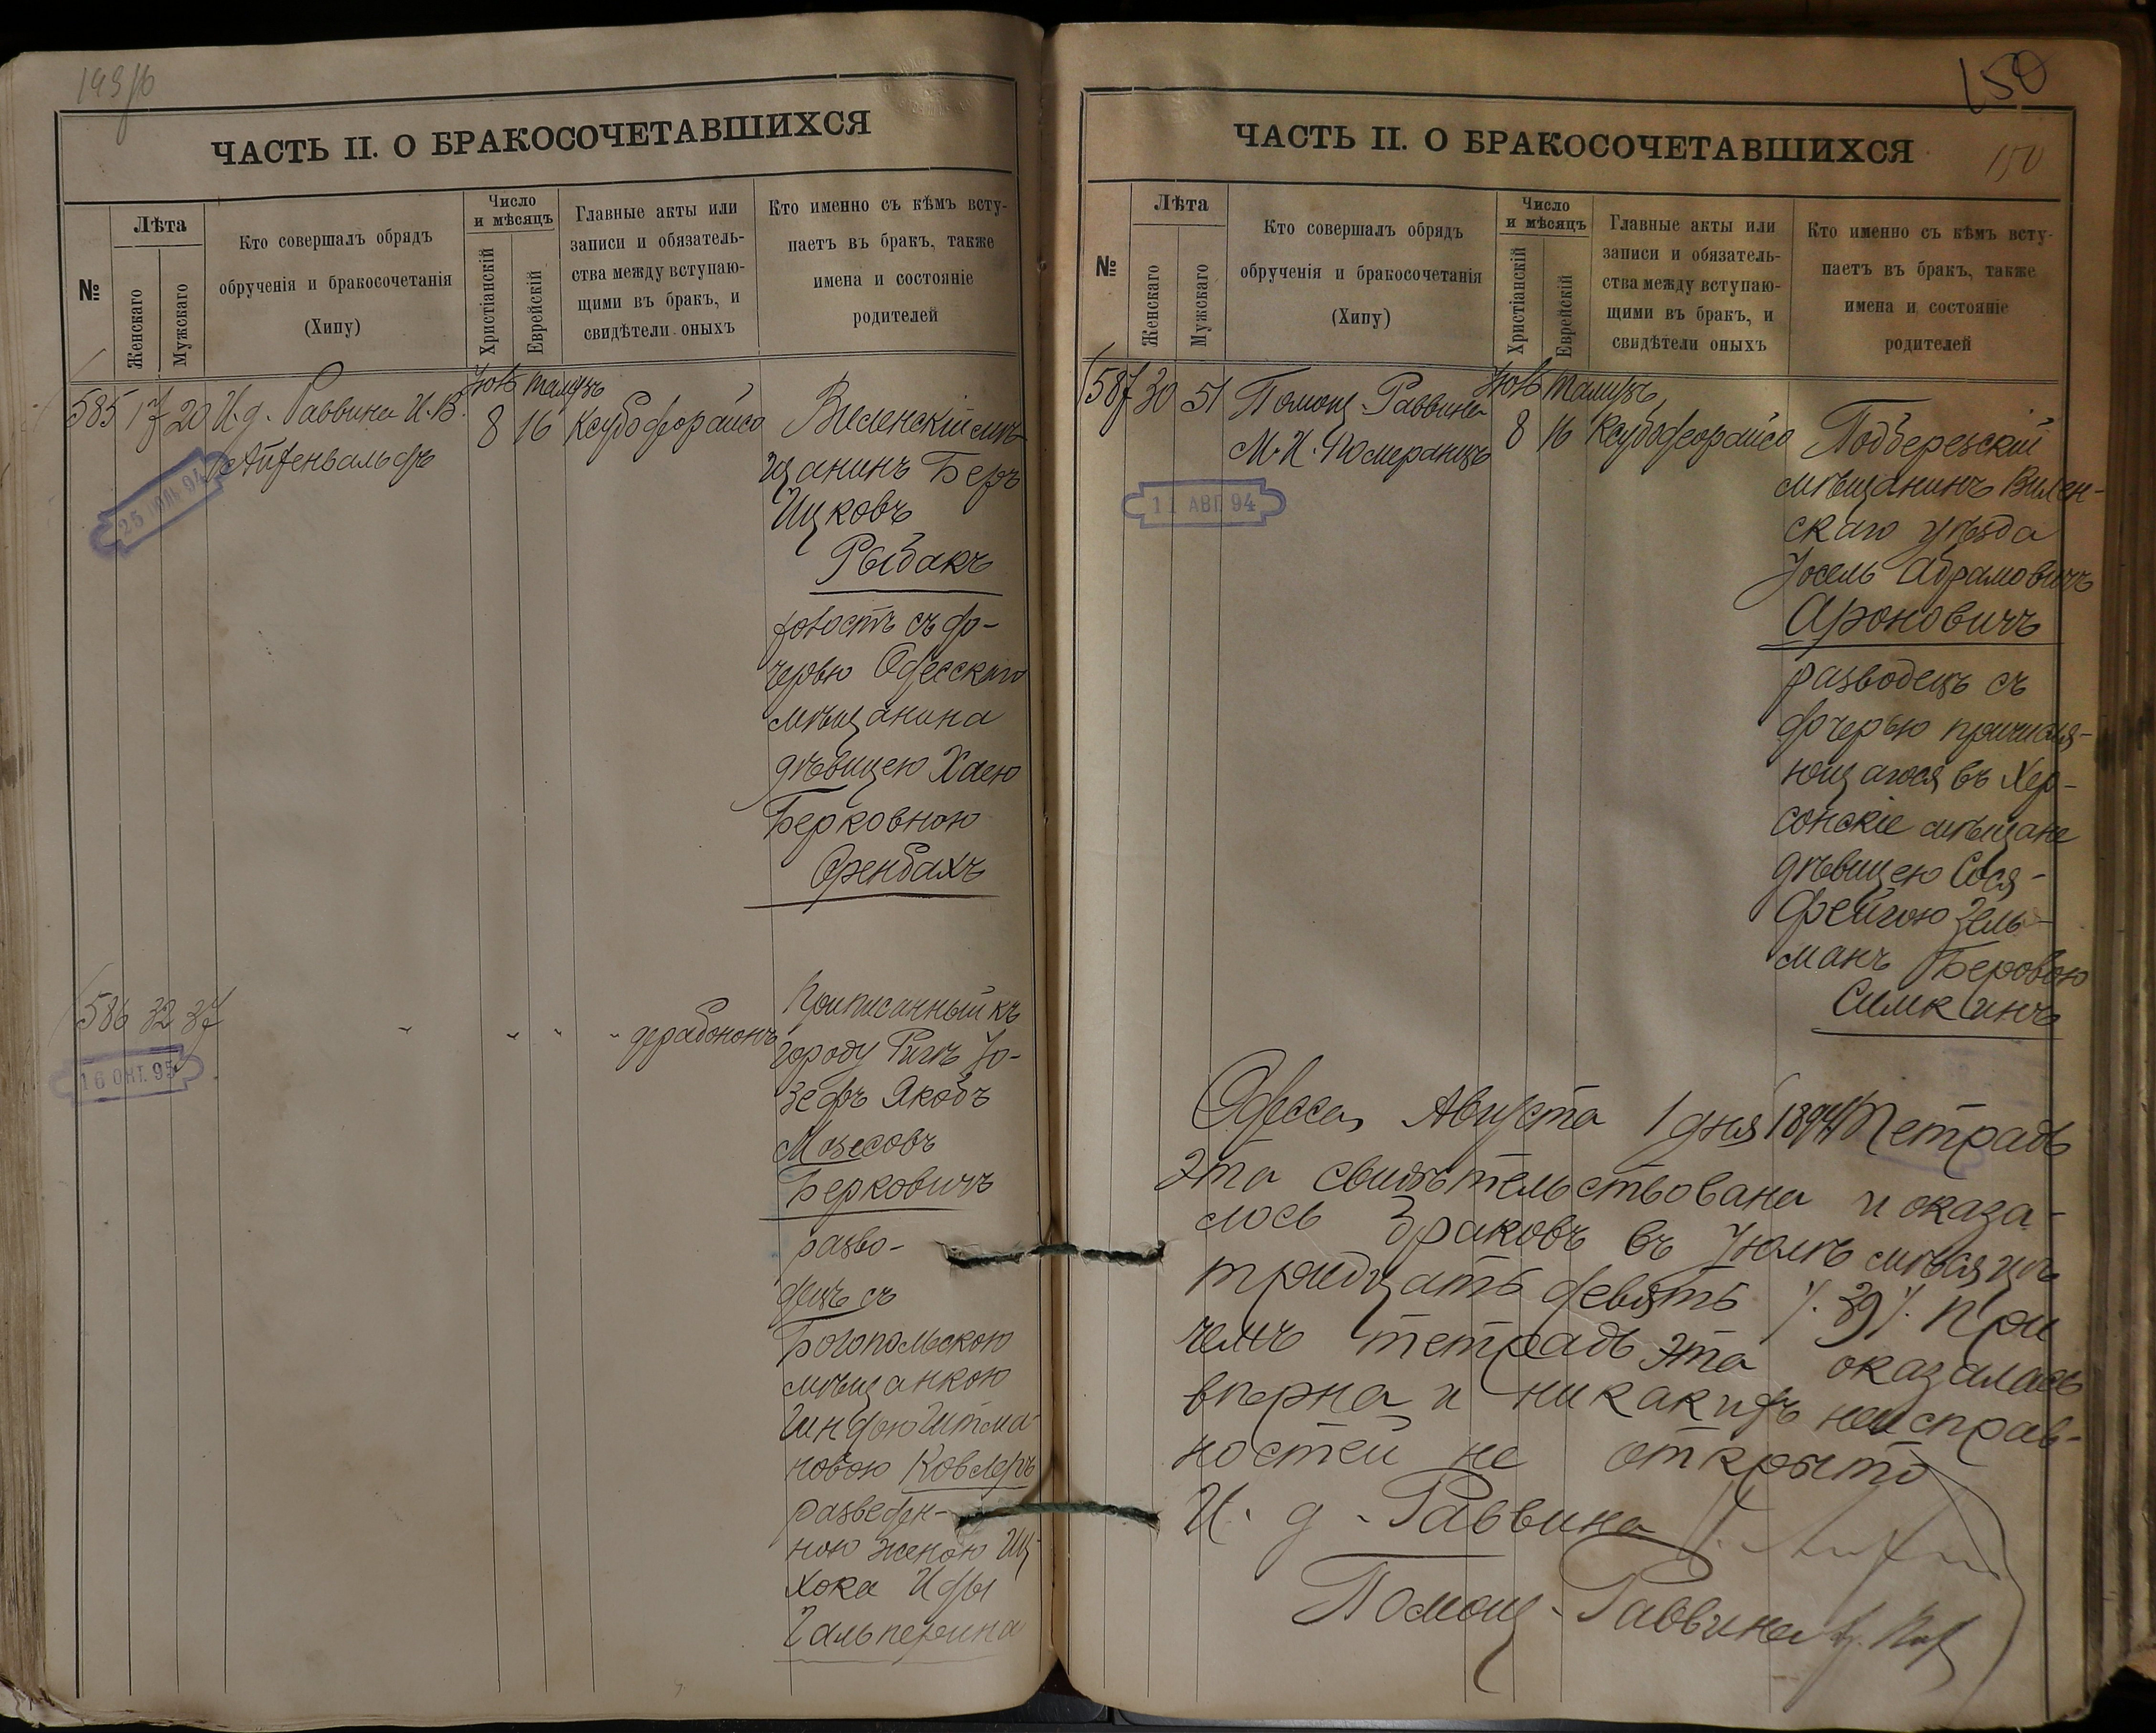 149 /об
ЧАСТЬ II. О БРАКОСОЧЕТАВШИХСЯ
№
Лѣта
Женскаго
Мужскаго
Кто совершалъ обрядъ
обрученія и бракосочетанія
(Хипу)
Число
и мѣсяцъ
Христіанскій
Еврейскій
Главные акты или
записи и обязатель-
ства между вступаю-
щими въ бракъ, и
свидѣтели оныхъ
Кто именно съ кѣмъ всту-
паетъ въ бракъ, также
имена и состояніе
родителей
585 17 20 И. д. Раввина И. В.
Айзенвальдъ
Іюль Тамузъ
8 16 Ксубо деорайсо
25 ІЮЛЬ 94
Виленскій мѣ-
щанинъ Беръ
Ицковъ
Рыбакъ
холостъ съ до-
черью Одесскаго
мѣщанина
дѣвицею Хаею
Берковною
Оренбахъ
586 32 37 " " " " дерабононъ
16 ОКТ. 95
Приписанный къ
городу Ригѣ Іо-
зефъ Якобъ
Мозесовъ
Берковичъ
разво-
децъ съ
Богопольскою
мѣщанкою
Гиндою Гитма-
новою Ковлеръ
разведен-
ною женою Иц-
хока Иды
Гальперина
150
ЧАСТЬ II. О БРАКОСОЧЕТАВШИХСЯ
150
№
Лѣта
Женскаго
Мужскаго
Кто совершалъ обрядъ
обрученія и бракосочетанія
(Хипу)
Число
и мѣсяцъ
Христіанскій
Еврейскій
Главные акты или
записи и обязатель-
ства между вступаю-
щими въ бракъ, и
свидѣтели оныхъ
Кто именно съ кѣмъ всту-
паетъ въ бракъ, также
имена и состояніе
родителей
587 30 51 Помощ. Раввина
М. И. Померанцъ
Іюль Тамузъ
8 16 Ксубо деорайсо
11 АВГ. 94
Подберезскій
мѣщанинъ Вилен-
скаго уѣзда
Іосель Абрамовичъ
Ароновичъ
разводецъ съ
дочерью причисля-
ющагося въ Хер-
сонскіе мѣщане
дѣвицею Сося-
Фейгою Зель-
манъ Беровою
Симкинъ
Одесса, Августа 1 дня 1894 Тетрадь
эта свидѣтельствована и оказа-
лось браковъ въ Іюлѣ мѣсяцѣ
тридцать девять /. 39 /. при
чемъ тетрадь эта оказалась
вѣрна и никакихъ неисправ-
ностей не открыто
И. д. Раввина
Помощ. Раввина